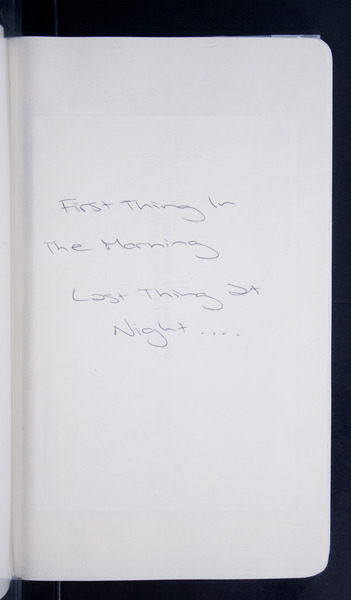 First Thing In
The Morning
Last Thing At
Night ....